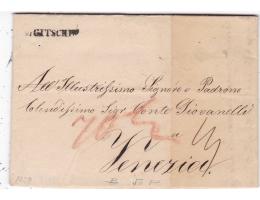 GITSCHIN
All' Illustrissimo Signore e Padrone
Colendissimo Sigr Conte Giovanelli
a
Venezia